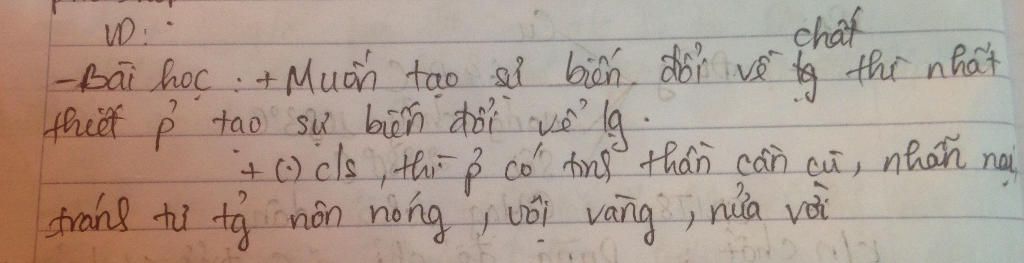 VD:
chất
- Bài học: + Muốn tạo sự biến đổi về lg thì nhất
thiết p̉ tạo sự biến đổi về lg.
+ (.) c/s, thì p̉ có tinh thần cần cù, nhẫn nại,
tránh tư tg̉ nôn nóng, vội vàng, nửa vời